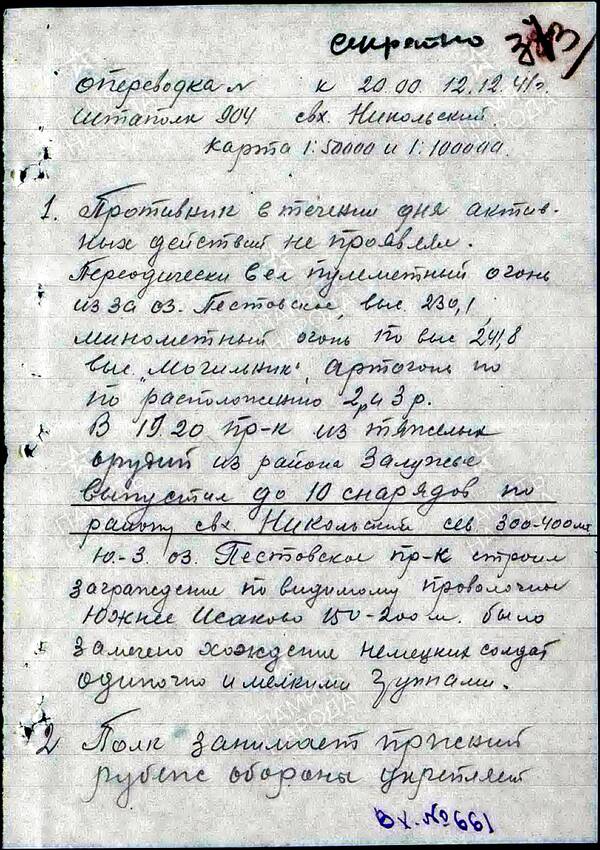 Секретно
Оперсводка № к 20.00 12.12.41г.
Штаполк 904 свх. Никольский.
Карта 1:50000 и 1:100000.
1. Противник в течении дня актив-
ных действий не проявлял.
Переодически вел пулеметный огонь
из за оз. Пестовское, выс. 230,1,
минометный огонь по выс 241,8
выс „Могильник", артогонь по
по расположению 2 и 3 р.
В 19.20 пр-к из тяжелых
орудий из района Залужье
выпустил до 10 снарядов по
району свх. Никольский сев 300-400мт
Ю.-З. оз. Пестовское пр-к строил
заграждение по видимому проволочные
Южнее Исаково 150-200м. было
замечено хождение немецких солдат
одиночно и мелкими группами.
2 Полк занимает прежний
рубеж обороны укрепляет
Вх. № 661